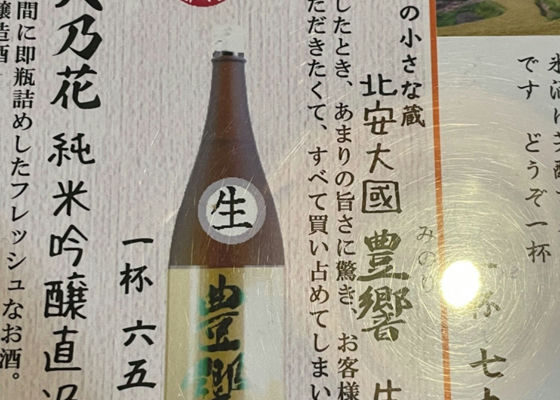 米酒は
です どうぞ一杯
一杯 七
の小さな蔵
北安大國 豊響 生
みのり
したとき、あまりの旨さに驚き、お客様
ただきたくて、すべて買い占めてしまい
生
豊響
一杯 六五
乃花 純米吟醸直
間に即瓶詰めしたフレッシュなお酒。
醸造酒